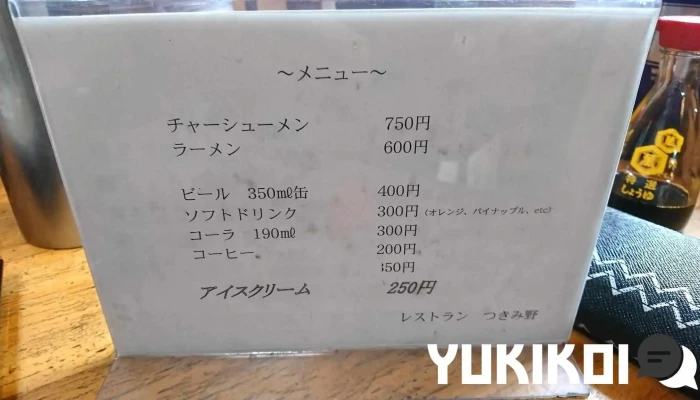 ～メニュー～
チャーシューメン 750円
ラーメン 600円
ビール 350㎖缶 400円
ソフトドリンク 300円 (オレンジ、パイナップル、etc)
コーラ 190㎖ 300円
コーヒー 200円
50円
アイスクリーム 250円
レストラン つきみ野
特選
しょうゆ
YUKIKOI